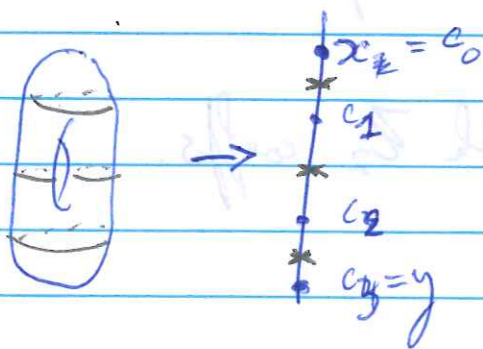 x = c₀
c₁
c₂
c₃ = y